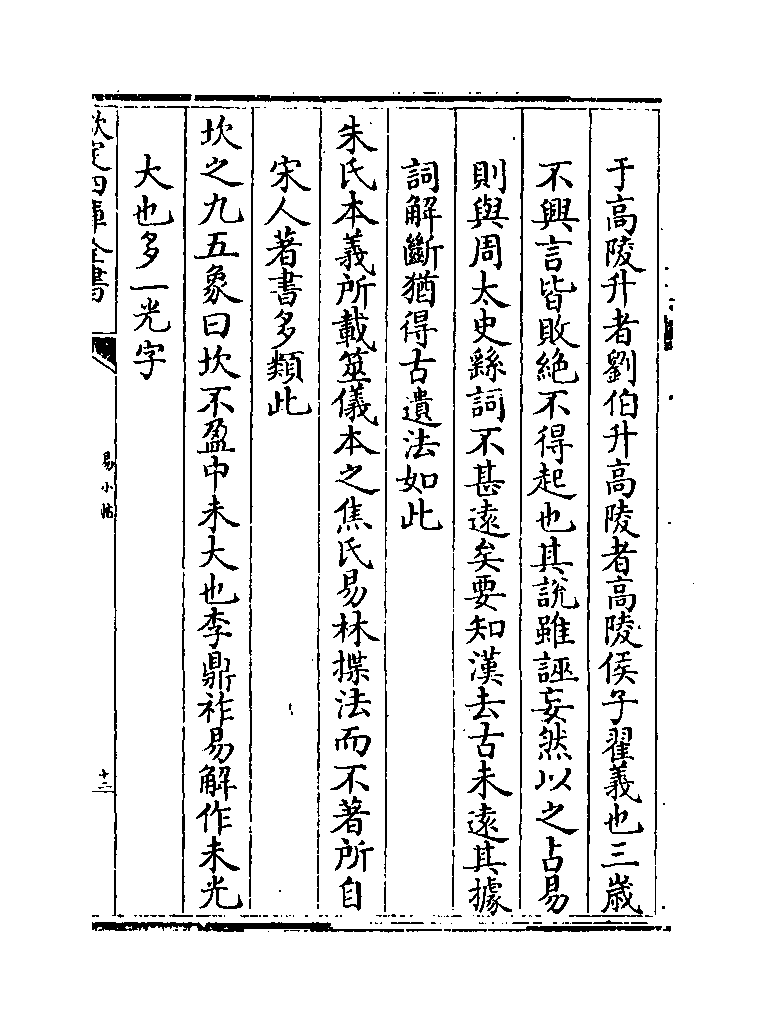 于高陵升者劉伯升高陵者高陵侯子翟義也三歳
不興言皆敗絶不得起也其說雖誣妄然以之占易
則與周太史繇詞不甚逺矣要知漢去古未逺其據
詞解斷猶得古遺法如此
朱氏本義所載筮儀本之焦氏易林揲法而不著所自
宋人著書多類此
坎之九五象曰坎不盈中未大也李鼎祚易解作未光
大也多一光字
欽定四庫全書
易小帖
十二